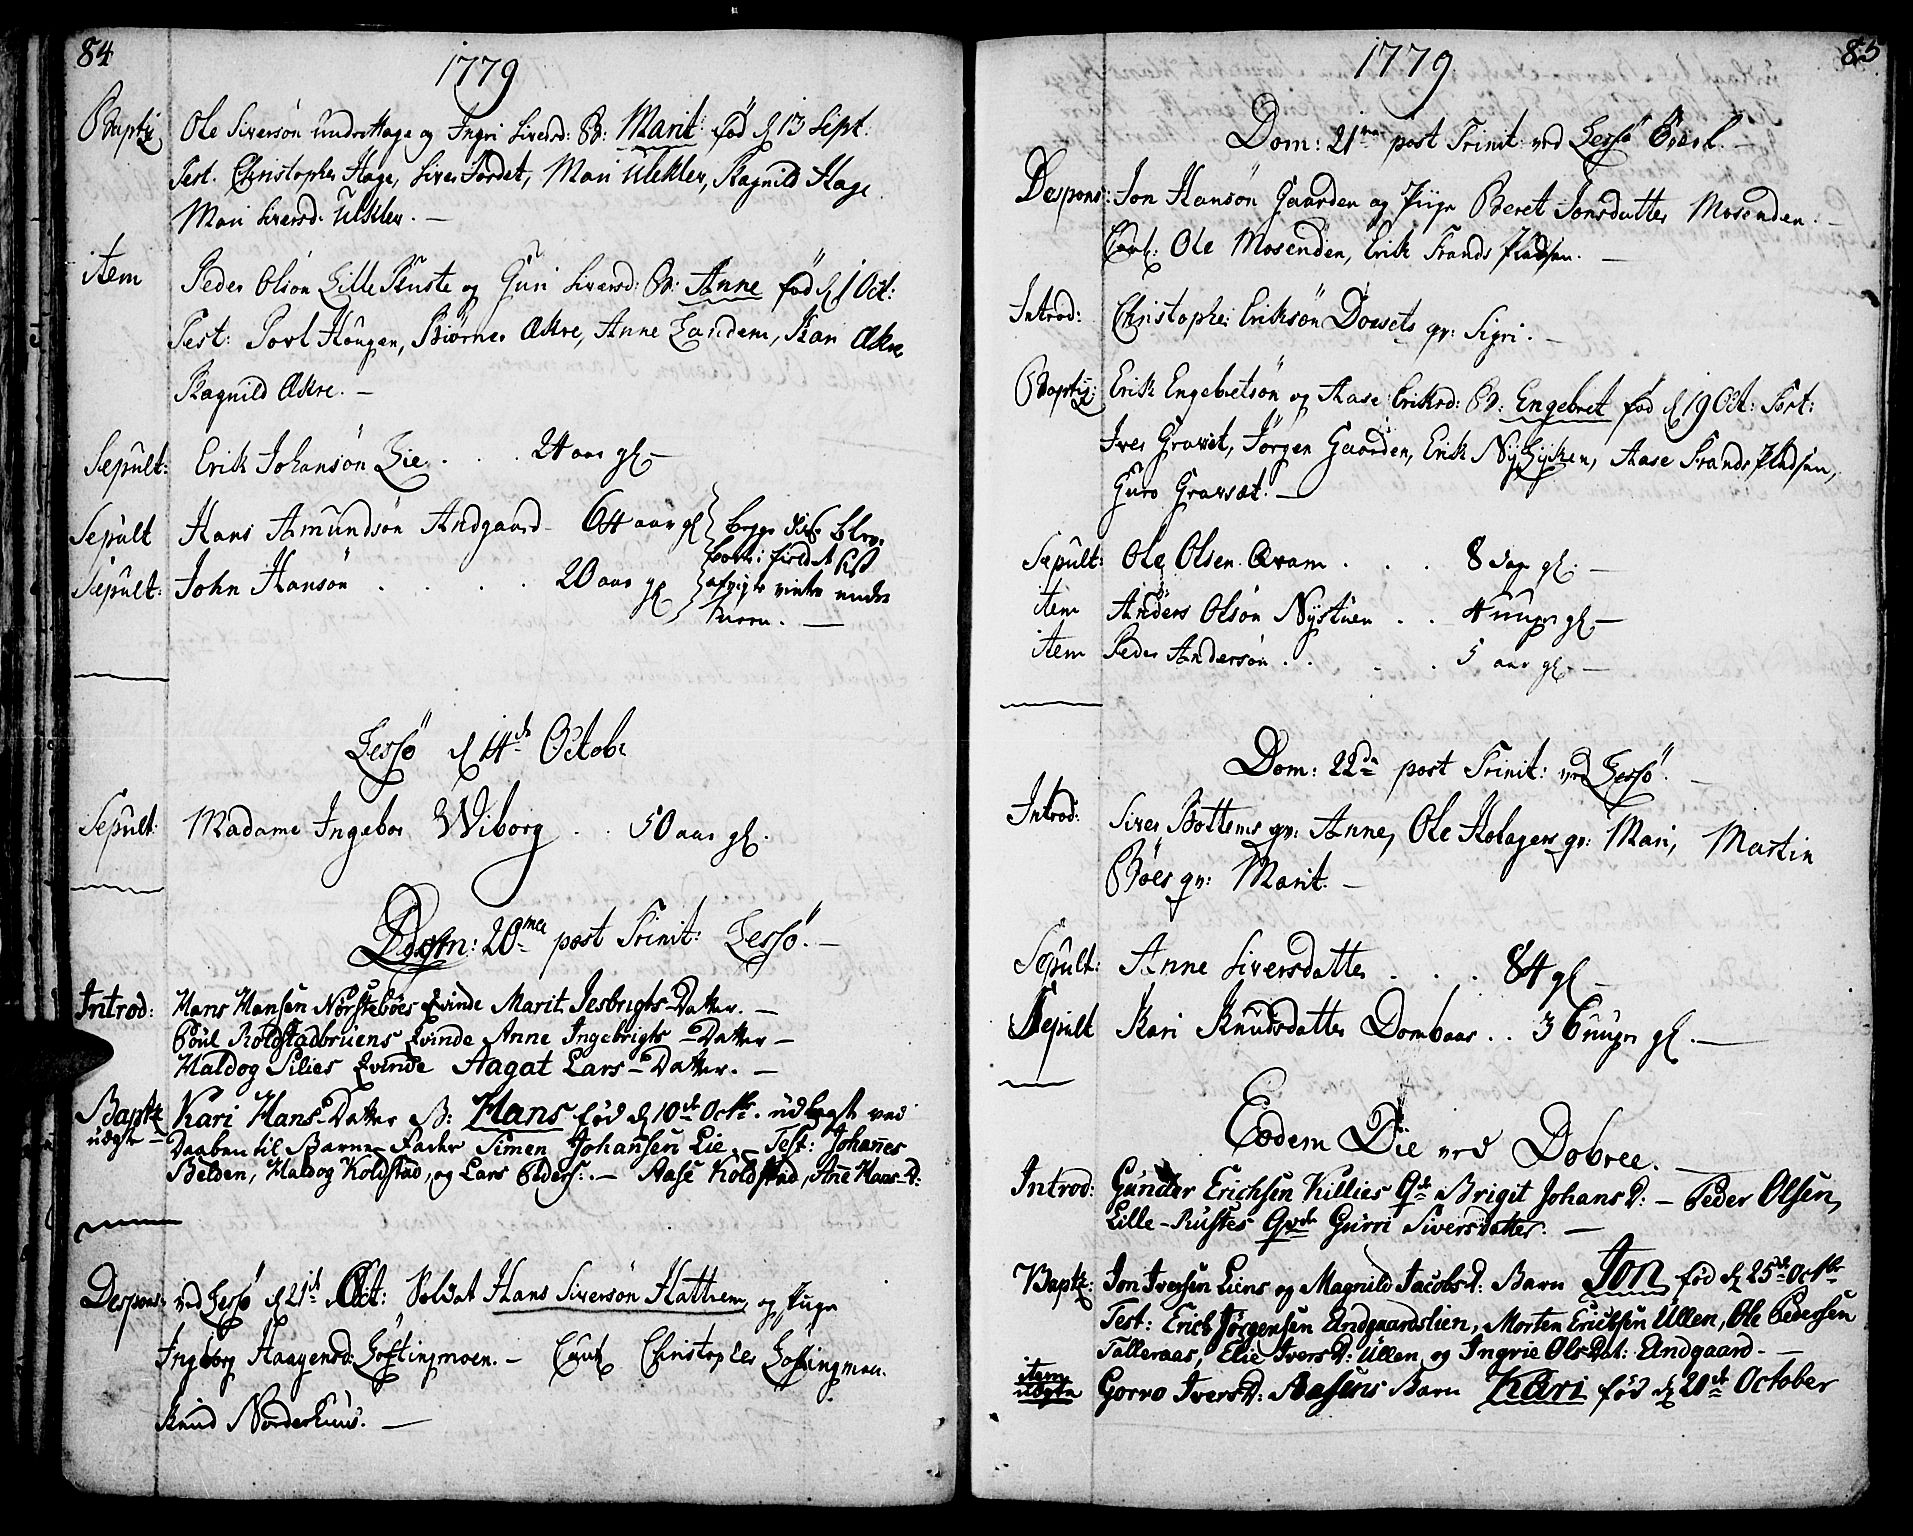 84
1779
Baptz Ole Siversön Undrettage og Ingri Siversd: B: Marit fød d 13 Sept:
Test. Christopher Hage, Siver Tordet, Mari Ulekler, Ragnild Hage
Mari Siversd. Ulkler. —
item Peder Olsön Lille Ruste og Guri Siversd: B: Anne fød d 1 Oct:
Test: Povl Hougen, Biørner Ækre, Anne Landem, Kari Ækre
Ragnild Ækre. —
Sepult: Erik Johansön Lie . . . 24 aar gl. —
Sepult Hans Amundsön Andgaard 64 aar gl begge disse blev
Sepult: John Hansön . . . . 20 aar gl
afvigte vinter under
Lessö d 14de Octobr
Sepult: Madame Ingebor Wiborg . . 50 aar gl.
Dom: 20ma post Trinit: Lessö. —
Introd: Hans Hansen Norsteböes Qvinde Marit Jesbrigts-Datter. —
Poul Koldstadbruens Qvinde Anne Ingebrigts-Datter —
Haldog Silies Qvinde Aagat Lars-Datter. —
Baptz Kari Hans-Datter B: Hans fød d 10de Octbr. udlagt ved
uægte — Daaben til Barne-Fader Simen Johansen Lie — Test: Johanes
Belden, Haldog Koldstad, og Lars Peders: — Aase Koldstad, Ane Hans-D:
Despons: ved Lessö d 21de Oct: Soldat Hans Siversön Hattrem, og Pige
Ingborg Haagensd: Löftingmoen. — Caut Christopher Loftingmoen.
Knud Nordenhuus. —
85
1779
Dom: 21ma post Trinit: ved Lessö Værk. —
Despons: Jon Hansön Gaarden og Pige Beret Jonsdatter Mosenden. —
Caut: Ole Mosenden, Erik Frands Pladsen. —
Introd: Christopher Eriksön Dorsets qv: Sigri. —
Baptz: Erik Engebretsön og Aase Eriksd: B: Engebret fød d 19 Oct: Test:
Iver Gravset, Jörgen Gaarden, Erik NyLyken, Aase Frands Pladsen,
Guro Gravsæt. —
Sepult: Ole Olsen Qvam . . . 8 dag gl. —
item Anders Olsön Nystuen . . 4 uuger gl. —
item Peder Andersön . . . . 5 aar gl. —
Dom: 22da post Trinit: ved Lessö. —
Introd: Siver Bottems qv: Anne, Ole Holagers qv: Mari, Martin
Böes qv: Marit. —
Sepult: Anne Siversdatter . . . 84 gl —
Sepult Kari Knudsdatter Dombaas . . 36 uuger gl. —
Eodem Die ved Dobree. —
Introd: Gunder Erichsen Killies Qde Brigit Johans D: — Peder Olsen,
Lille-Rustes Qvde Gurri Siversdatter. —
Baptz: Jon Iversen Liens og Magnild Jacobs D: Barn Jon fød d 25de Octbr
Test: Erich Jørgensen Andgaardslien, Morten Erichsen Ullen, Ole Pedersen
Talleraas, Elie Ivers D: Ullen og Ingrie Ols Dat: Andgaard. —
item
uægte Gorro Ivers D: Aasens Barn Kari fød d 20de October